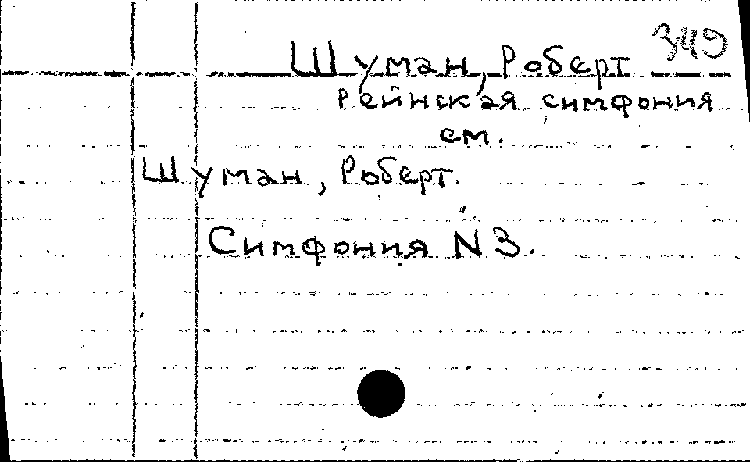 349
Шуман, Роберт
Рейнская симфония
см.
Шуман, Роберт.
Симфония N 3.